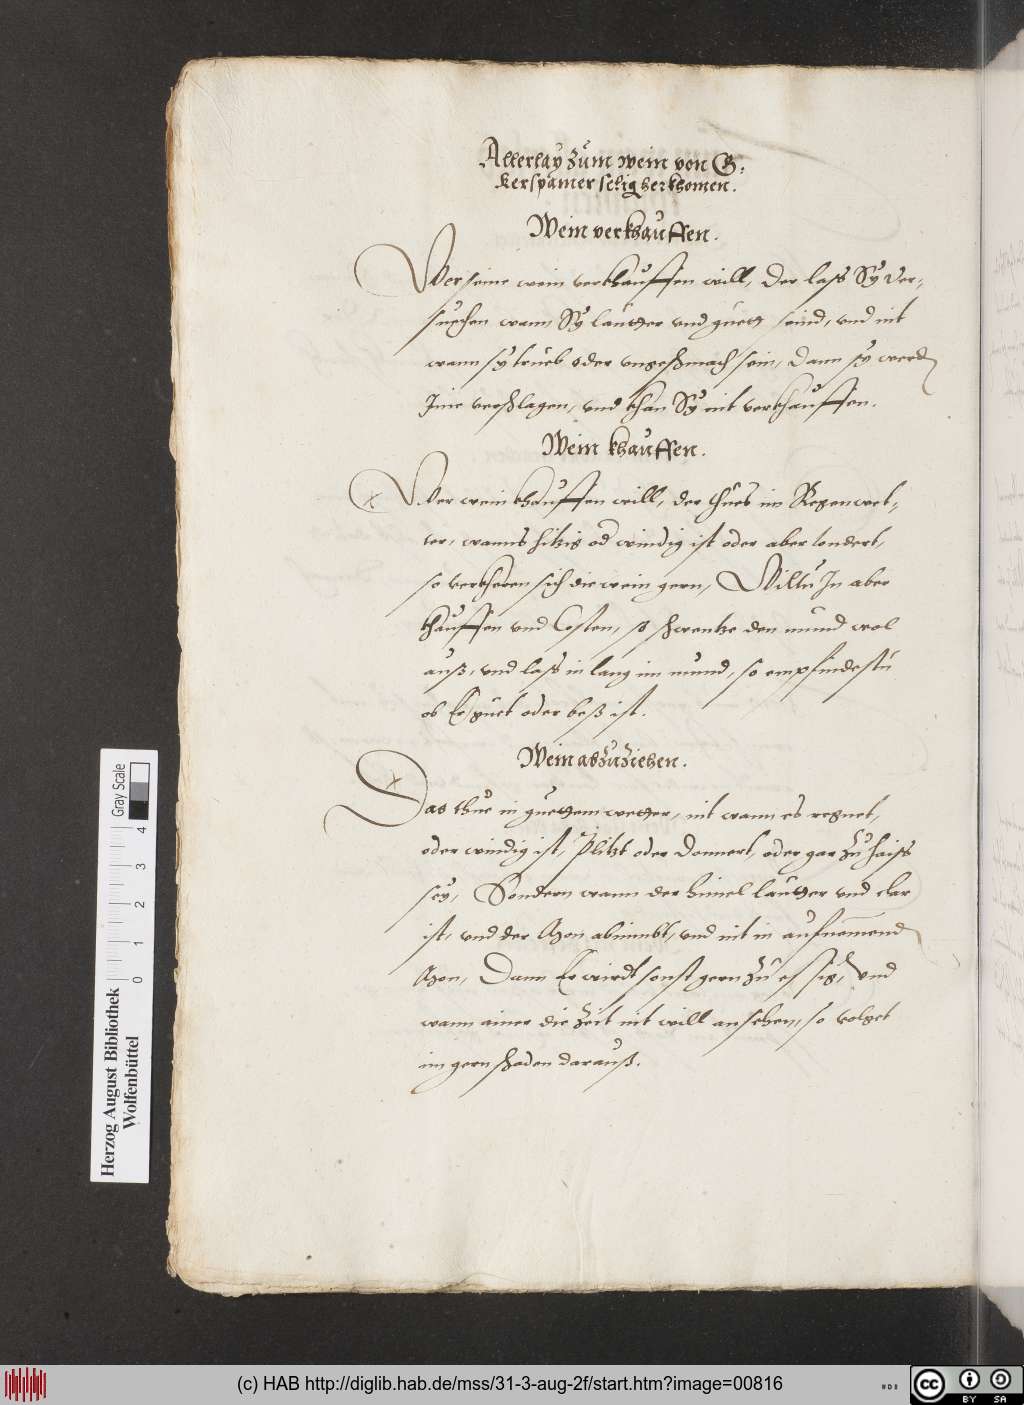 Allerlay zům wein von G:
kerspamer selig herkhomen.
Wein verkhauffen.
Wer seine wein verkhauffen will, der lass Sy ver-
suechen wann Sy lautter vnd guett seind, vnd nit
wann sy trueb oder vngeschmach sein, dann sy werdn
Ime verschlagen, vnd khan Sy nit verkhauffen.
Wein khauffen.
x Wer wein khauffen will, der thues im Regenwet-
ter, wanns hitzig od windig ist oder aber tondert,
so verkheren sich die wein gern, Willtu In aber
khauffen vnd Costen, so schwentze den mund wol
auß, vnd lass in lang im mund, so empfindestu
ob Er guet oder beß ist.
Wein abzuziehen.
x Das thue in guettem wetter, nit wann es regnet,
oder windig ist, Plitzt oder donnert, oder gar zu haiss
sey, Sonndern wann der himel lautter vnd clar
ist, vnd der Mon abnimbt, vnd nit in aufnemend
Mon, Dann Er wirdt sonst gern zu essig, vnd
wann ainer die Zeit nit will ansehen, so volget
im gern schaden darauß.
Herzog August Bibliothek
Wolfenbüttel
Gray Scale
0 1 2 3 4
(c) HAB http://diglib.hab.de/mss/31-3-aug-2f/start.htm?image=00816
cc BY SA